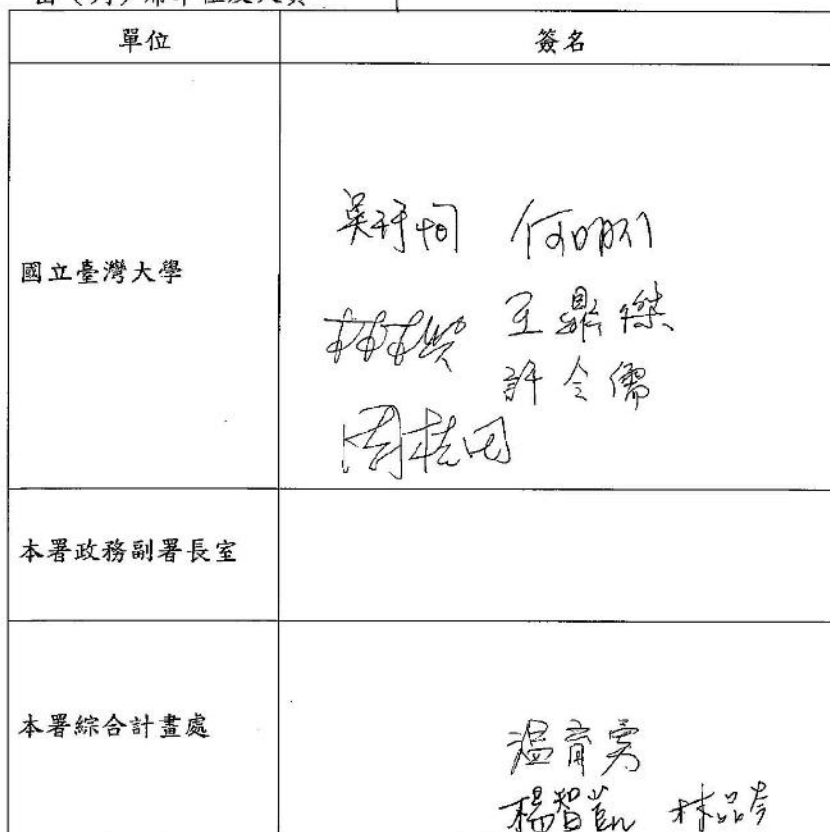 單位 簽名
國立臺灣大學
何明修
王鼎傑
許令儒
周桂田
本署政務副署長室
本署綜合計畫處
溫育勇
楊智凱 林品岑